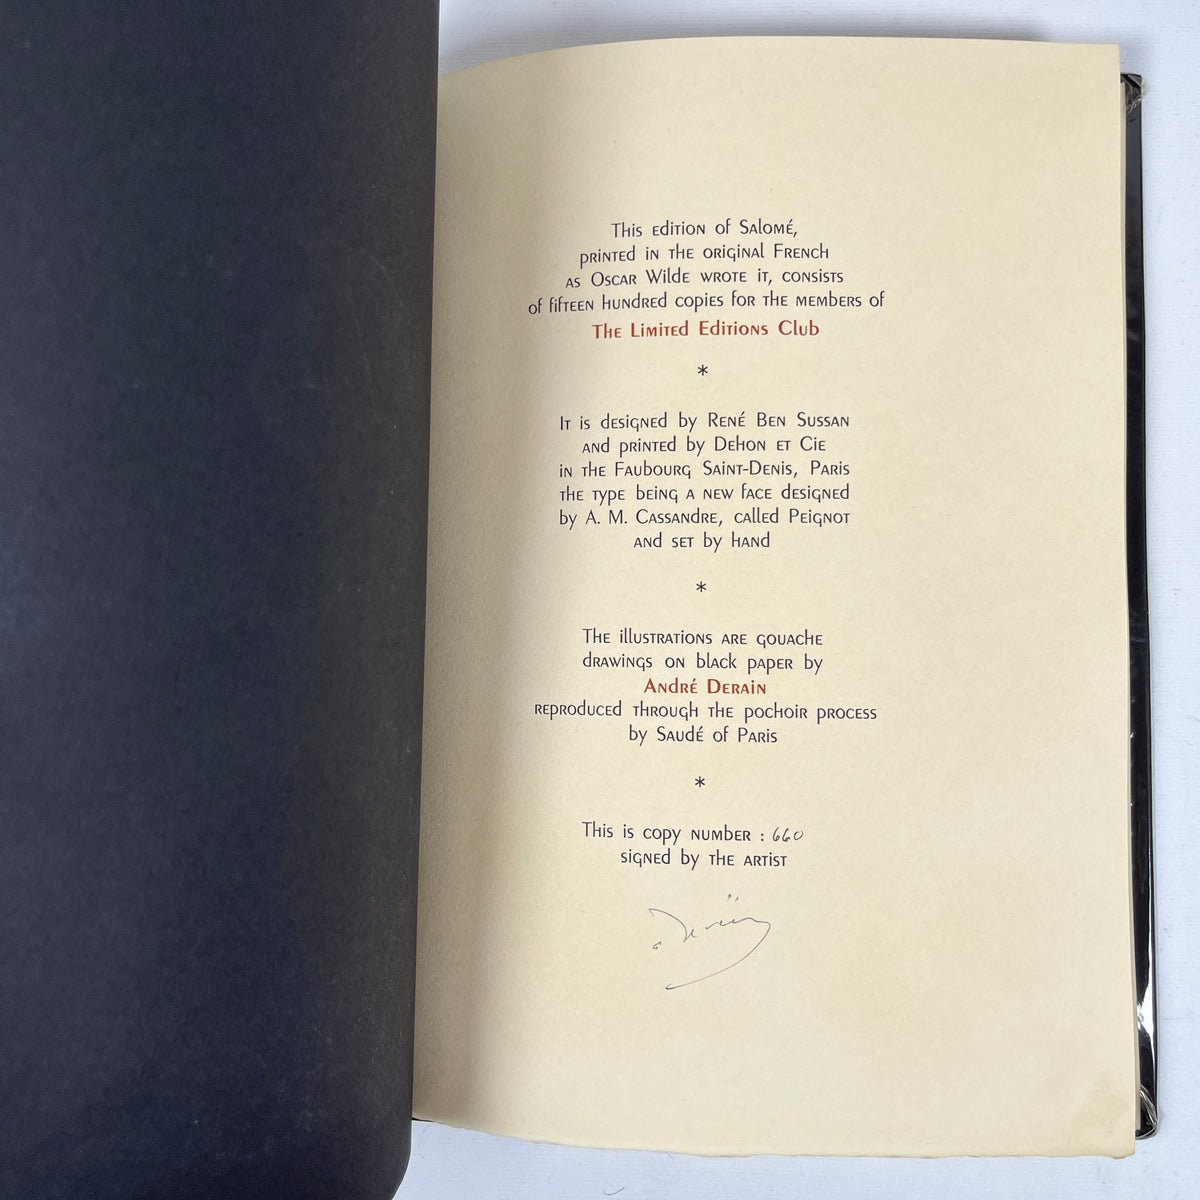 This edition of Salomé,
printed in the original French
as Oscar Wilde wrote it, consists
of fifteen hundred copies for the members of
The Limited Editions Club
*
It is designed by René Ben Sussan
and printed by Dehon et Cie
in the Faubourg Saint-Denis, Paris
the type being a new face designed
by A. M. Cassandre, called Peignot
and set by hand
*
The illustrations are gouache
drawings on black paper by
André Derain
reproduced through the pochoir process
by Saudé of Paris
*
This is copy number : 660
signed by the artist
a Derain